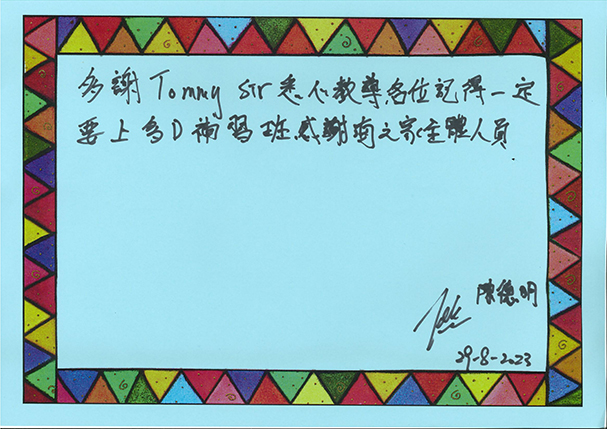 多謝 Tommy sir 悉心教導各位記得一定
要上多D補習班感謝之家全體人員
陳德明
29-8-2023